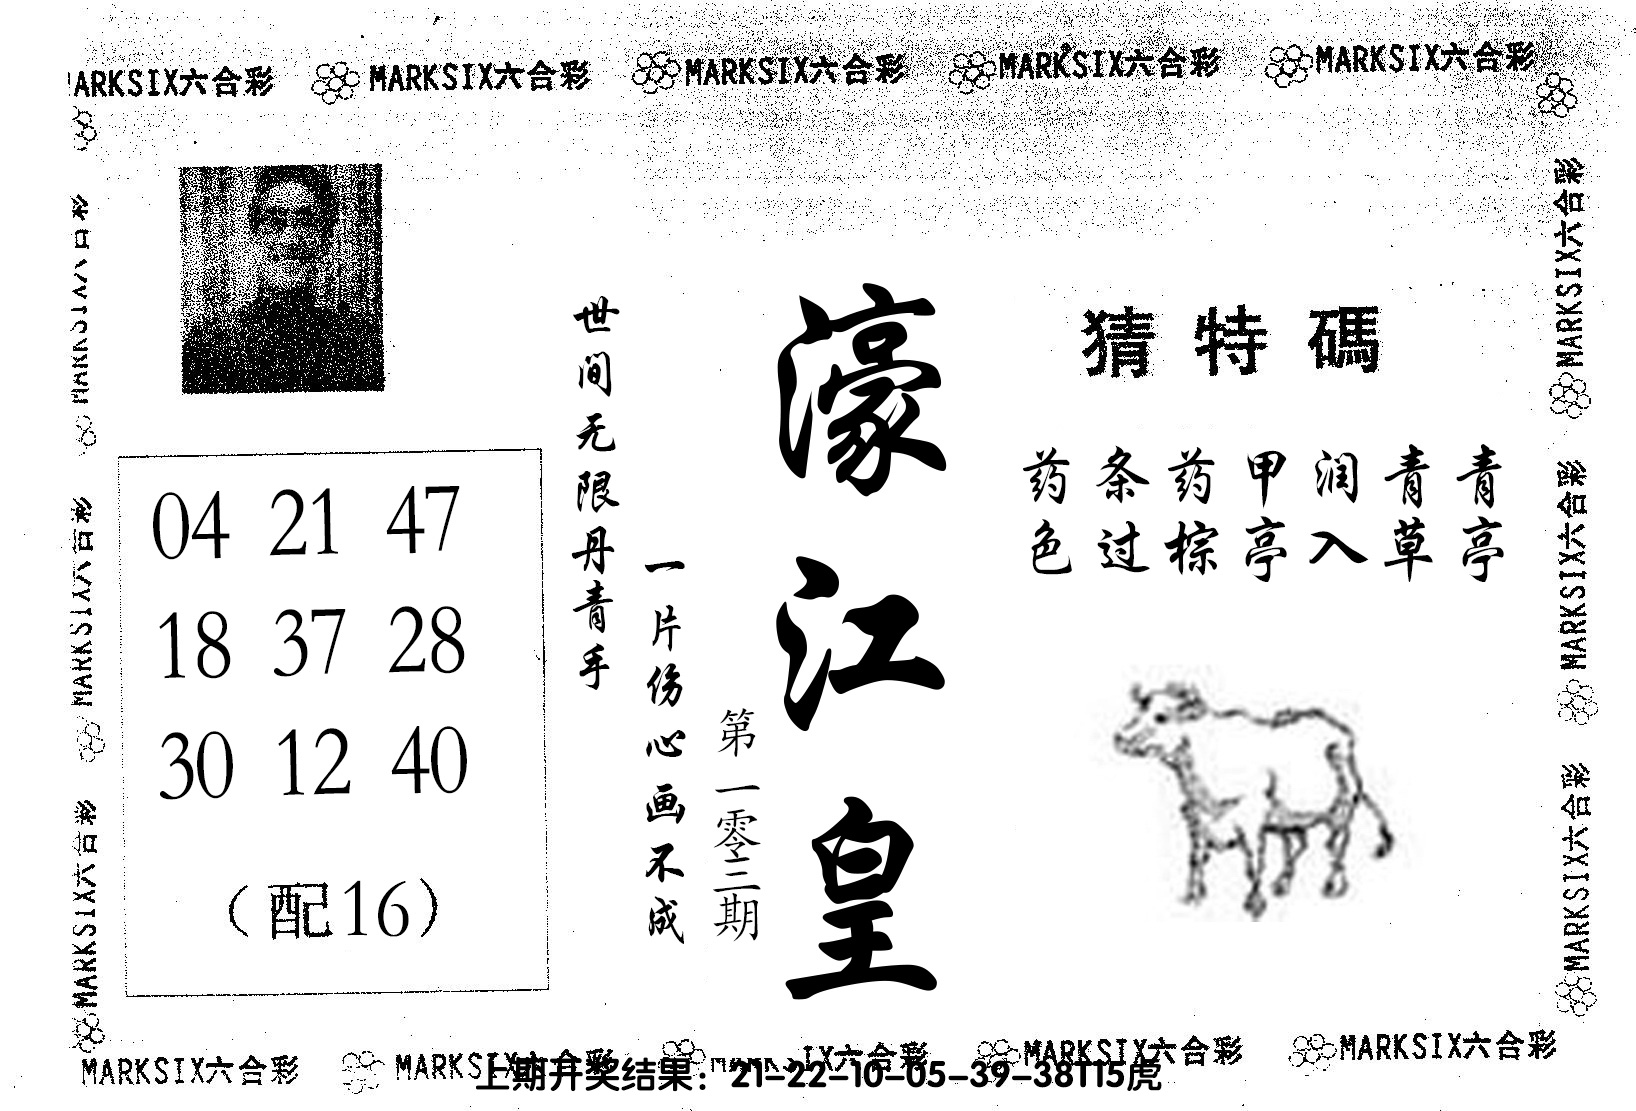 MARKSIX六合彩 MARKSIX六合彩 MARKSIX六合彩 MARKSIX六合彩
ARKSIX六合彩
猜特碼
药条药甲润青青
色过棕亭入草亭
濠江皇
第一零三期
世间无限丹青手
一片伤心画不成
04 21 47
18 37 28
30 12 40
(配16)
MARKSIX六合彩
MARKSIX六合彩
MARKSIX六合彩
MARKSIX六合彩
MARKSIX六合彩
MARKSIX六合彩
MARKSIX六合彩 MARKSIX六合彩 IX六合彩 MARKSIX六合彩 MARKSIX六合彩
上期开奖结果：21-22-10-05-39-38T15虎